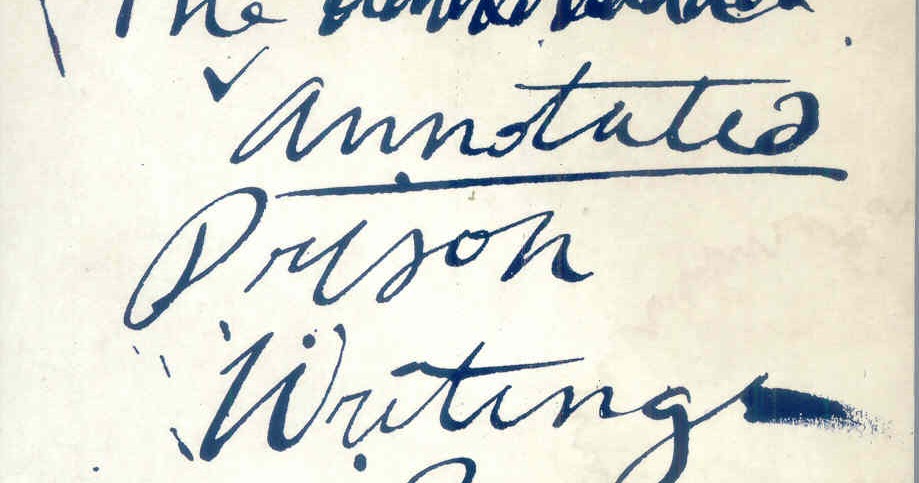 The
annotated
Prison
Writings